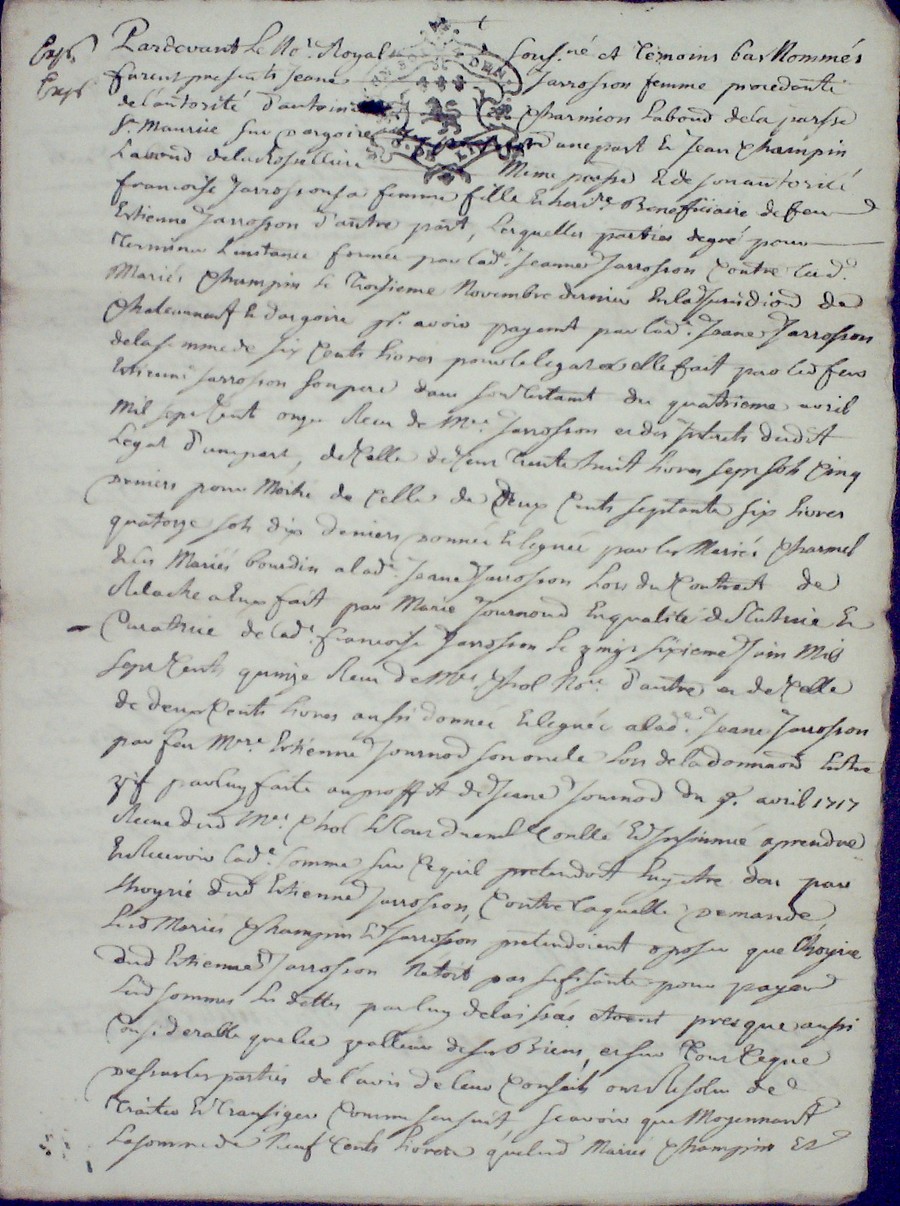 Pardevant Le No.e Royal Sous.né et Témoins bas Nommés
furent presents Jeane Jarrosson femme procedante
de l'autorité d'antoine Charmion Laboud. de la parsse
St. Maurice sur dargoire d'une part Et Jean Champin
Laboud. de la Meme parsse Et de son autorité
francoise Jarrosson sa femme fille Et herd.re Beneficiaire de feu
Estienne Jarrosson d'autre part, Lesquelles parties de gré pour
Terminer L'instance formée par lad.e Jeanne Jarrosson Contre lesd.
Mariés Champin Le Troisieme Novembre dernier En la Jurisdiond de
Chateauneuf Et dargoire pr. avoir payemt par lad.e Jeane Jarrosson
de la somme de six Cents livres pour le legat a elle fait par led feu
Estienne Jarrosson son pere dans son Testamt du quatrieme avril
Mil sept Cent onze Receu de Me. Jarrosson et des Interets dudit
Legat d'une part, de Celle de Cent trente huit livres sept sols Cinq
Deniers pour Moitié de Celle de Deux Cents septante six livres
quatorze sols dix deniers donnée Et leguée par les Mariés Charmel
& les Mariés bourdin a lad.e Jeane Jarrosson Lors du Contract de
Relache a Eux fait par Marie Journoud En qualité de Tutrice Et
Curatrice de lad.e francoise Jarrosson Le vingt sixieme Juin Mil
sept Cents quinze Receu de Me. Thol No.re d'autre et de Celle
de deux Cents livres aussi donnée Et leguée a lad.e Jeane Jarrosson
par feu M.re Estienne Journod son oncle Lors de la donnaond Entre
vif par luy faite au proffit de Jeane Journod du 9. avril 1717
Receue dud M.e Thol Et Tout duemt Conllé Et Insinuué a prendre
Et Recevoir lad.e somme sur Ce quil pretendoit Luy Etre deu par
L'hoyrie dud Estienne Jarrosson, Contre laquelle Demande
Lesd Mariés Champin Et Jarrosson pretendoient oposer que l'hoyrie
dud Estienne Jarrosson Netoit pas sufisante pour payer
Lesd sommes Les dettes par luy delaissés etoent presque aussi
Considerable que la valleur de ses Biens, et sur Tout Ce que
Dessus les parties de l'avis de leur Conseils ont Resolu de
Traiter Et Transiger Comme sensuit scavoir que Moyennant
La somme de Neuf Cents livres que lesd Mariés Champin Et